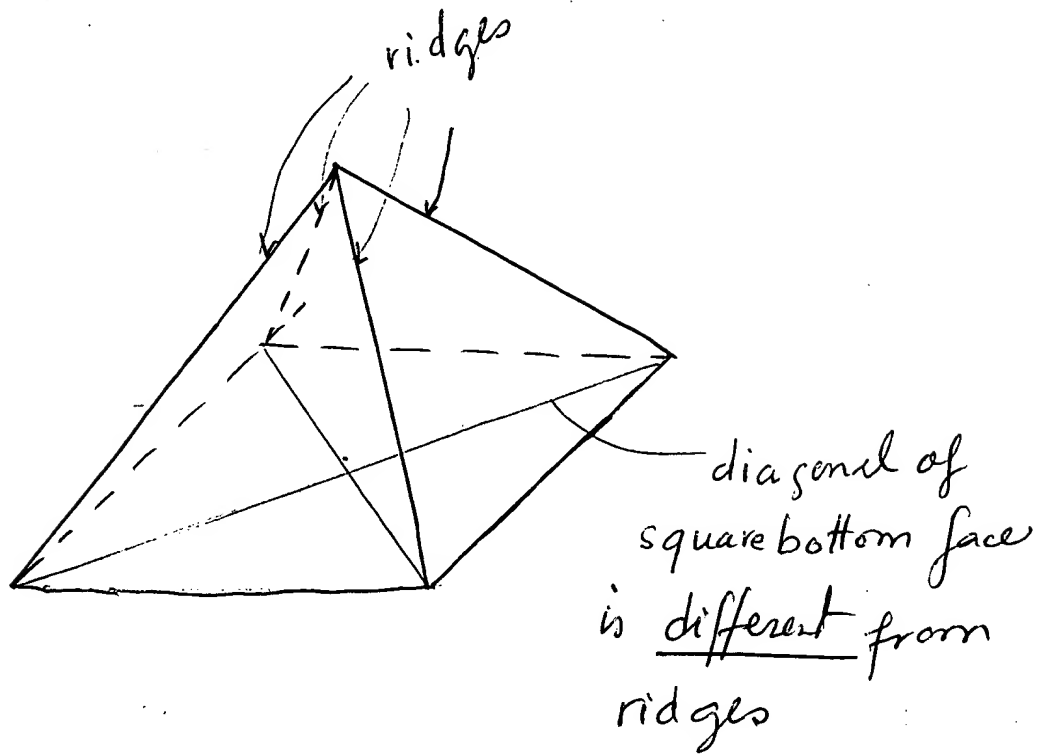 ridges
diagonel of
square bottom face
is different from
ridges